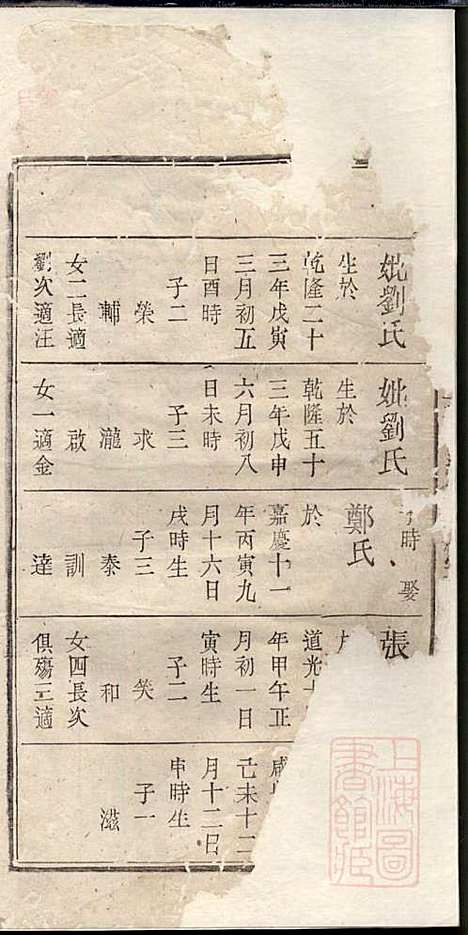 妣劉氏
生於
乾隆二十
三年戊寅
三月初五
日酉時
子二
榮
輔
女二長適
劉次適汪
妣劉氏
生於
乾隆五十
三年戊申
六月初八
日未時
子三
求
瀧
啟
女一適金
時娶
鄭氏
於
嘉慶十一
年丙寅九
月十六日
戌時生
子三
泰
訓
達
張
道光十
年甲午正
月初一日
寅時生
子二
笑
和
女四長次
俱殤三適
咸
己未十二
月十二日
申時生
子一
滋
上海圖
書館藏